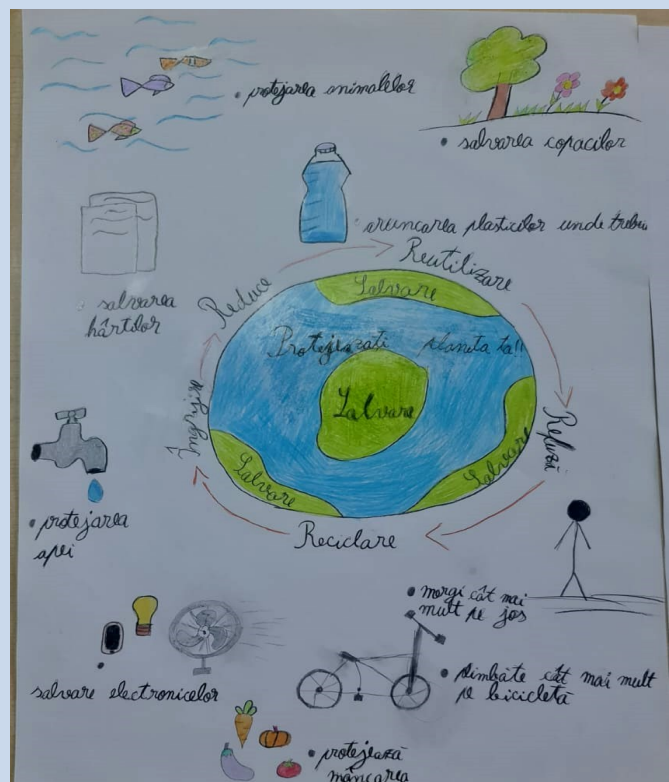 • protejarea animalelor
• salvarea copacilor
• aruncarea plasticilor unde trebuie
• salvarea
hârtilor
Reduce
Reutilizare
Refuză
Reciclare
Îngrijire
Salvare
Protejeazati planeta ta!!
Salvare
Salvare
Salvare
• protejarea
apei
• mergi cât mai
mult pe jos
• plimbate cât mai mult
pe bicicletă
• salvare electronicelor
• protejează
mâncarea